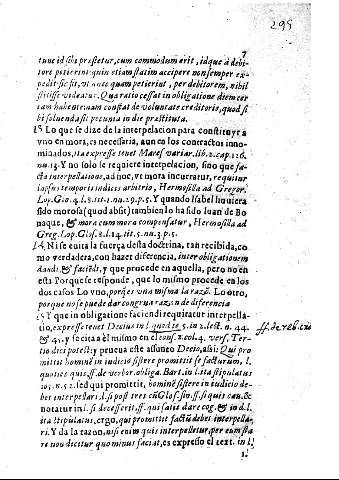 295
7
tunc id sibi præstetur, cum commodum erit, idque à debi-
tore petierint: quin etiam statim accipere non semper ex-
pedit: sic fit, ut ante quam petierint, per debitorem, nihil
stitisse videatur. Qua ratio cessat in obligatione diem cer
tam habente: nam constat de voluntate creditoris, quod si
bi soluenda sit pecunia in die præstituta.
13 Lo que se dize de la interpelacion para constituyr a
vno en mora, es necessaria, aun en los contractos inno-
minados, ita expresse tenet Mares variar. lib. 2. cap. 126.
nu. 13. Y no solo le requiere interpelacion, sino que fac-
ta interpellatione, ad hoc, vt mora incurratur, requiritur
lapsus temporis iudicis arbitrio, Hermosilla ad Gregor.
Lop. Glo. 4. l. 8. tit. 1. nu. 29. p. 5. Y quando Isabel huuiera
sido morosa (quod absit) tambien lo ha sido Iuan de Bo
naque, & mora cum mora compensatur, Hermosilla ad
Greg. Lop. Glos. 8. l. 14. tit. 5. nu. 3. p. 5.
14 Ni se euita la fuerça desta doctrina, tan recibida, co
mo verdadera, con hazer diferencia, inter obligationem
dandi, & faciẽdi, y que procede en aquella, pero no en
esta Porque se responde, que lo mismo procede en los
dos casos Lo vno, porq̃ es vna misma la razõ. Lo otro,
porque no se puede dar congrua razon de diferencia
15 Y que in obligatione faciendi requiratur interpella-
tio, expresse tenet Decius in l. quod te 5. in 2. lect. n. 44. ff. de reb. cre
& 41. y se cita él mismo en el cons. 2. col. 4. vers. Ter-
tio dici potest; y prueua este assunto Decio, assi: Qui pro
mittit hominẽ in iudicio sistere promittit se facturum, l.
quoties quis, ff. de verbor. obliga. Bart. in l. ita stipulatus
105. n. 52. sed qui promittit, hominẽ sistere in iudicio de-
bet interpellari. l. si post tres cũ Glos. sin. ff. si quis cau. &
notatur in l. si decesserit, ff. qui satis dare cog. & in d. l.
ita stipulatus, ergo, qui promittit factũ debet interpella-
ri. Y da la razon, nisi enim quis interpelletur, per eum sta
re non dicitur quominus faciat, es expresso el text. in l.
1.